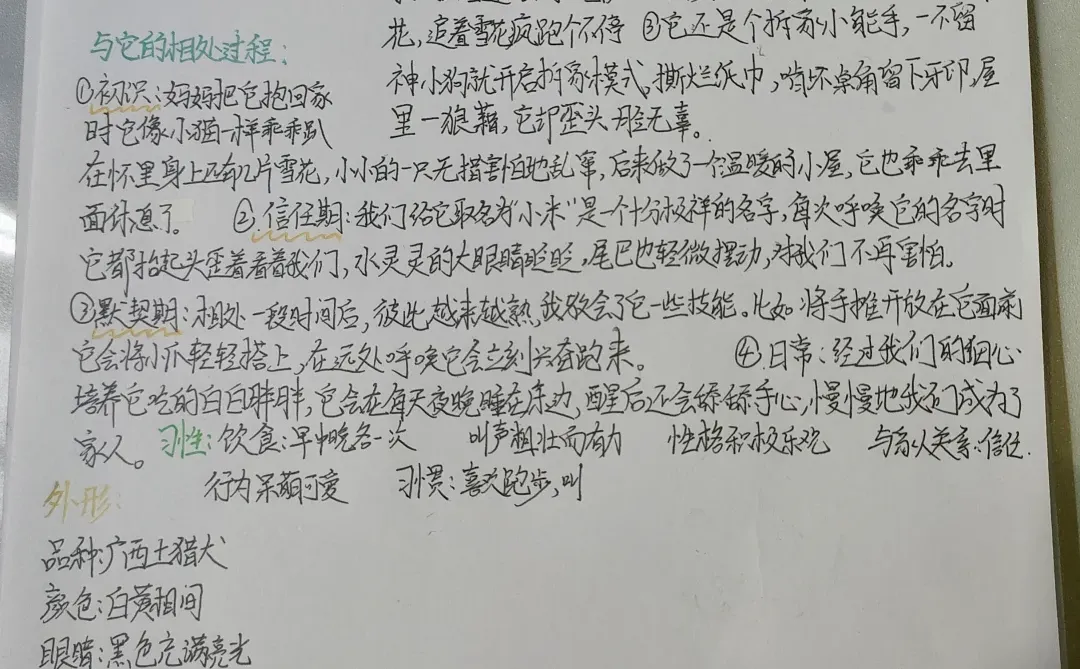 花，追着雪花疯跑个不停 ③它还是个拆家小能手，一不留
神小狗就开启拆家模式，撕烂纸巾，啃坏桌角留下牙印，屋
里一狼藉，它却歪头一脸无辜。
与它的相处过程：
①初识：妈妈把它抱回家
时它像小猫一样乖乖趴
在怀里身上还有几片雪花，小小的一只无措害怕地乱窜，后来做了一个温暖的小屋，它也乖乖去里
面休息了。 ②信任期：我们给它取名为“小米”是一个十分极祥的名字，每次呼唤它的名字时
它都抬起头歪着看着我们，水灵灵的大眼睛眨眨，尾巴也轻微摆动，对我们不再害怕。
③默契期：相处一段时间后，彼此越来越熟，我教会了它一些技能。比如将手摊开放在它面前
它会将小爪轻轻搭上，在远处呼唤它会立刻兴奋跑来。 ④日常：经过我们的细心
培养它吃的白白胖胖，它会在每天夜晚睡在床边，醒后还会舔舔手心，慢慢地我们成为了
家人。 习性：饮食：早中晚各一次 叫声粗壮而有力 性格积极乐观 与家人关系：信任
行为呆萌可爱 习惯：喜欢跑步，叫
外形：
品种：广西土猎犬
颜色：白黄相间
眼睛：黑色充满亮光